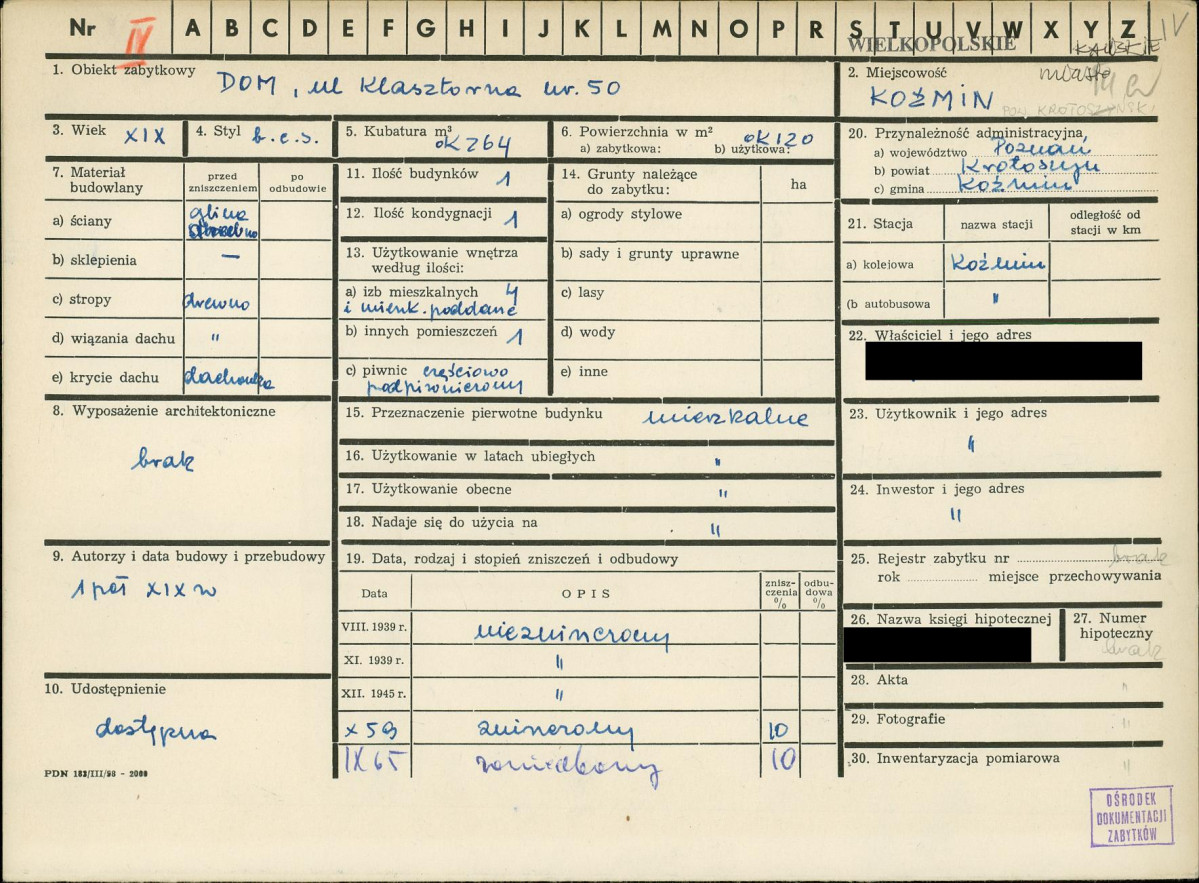 Nr IV A B C D E F G H I J K L M N O P R S T U V W X Y Z IV
WIELKOPOLSKIE
KALISKIE
1. Obiekt zabytkowy DOM, ul Klasztorna nr. 50
2. Miejscowość miasto
KOŹMIN
POW. KROTOSZYŃSKI
3. Wiek XIX
4. Styl b.c.s.
5. Kubatura m³
ok 264
6. Powierzchnia w m² ok 120
a) zabytkowa: b) użytkowa:
20. Przynależność administracyjna,
a) województwo Poznań
b) powiat Krotoszyn
c) gmina Koźmin
7. Materiał budowlany
przed zniszczeniem
po odbudowie
a) ściany glina
b) sklepienia —
c) stropy drewno
d) wiązania dachu "
e) krycie dachu dachówka
11. Ilość budynków 1
12. Ilość kondygnacji 1
13. Użytkowanie wnętrza
według ilości:
a) izb mieszkalnych 4
i mieszk. poddane
b) innych pomieszczeń 1
c) piwnic częściowo
podpiwniczony
14. Grunty należące
do zabytku:
ha
a) ogrody stylowe
b) sady i grunty uprawne
c) lasy
d) wody
e) inne
21. Stacja
nazwa stacji
odległość od
stacji w km
a) kolejowa Koźmin
(b autobusowa "
22. Właściciel i jego adres
8. Wyposażenie architektoniczne
brak
15. Przeznaczenie pierwotne budynku mieszkalne
16. Użytkowanie w latach ubiegłych "
17. Użytkowanie obecne "
18. Nadaje się do użycia na "
23. Użytkownik i jego adres
"
24. Inwestor i jego adres
"
9. Autorzy i data budowy i przebudowy
1 poł XIX w
19. Data, rodzaj i stopień zniszczeń i odbudowy
Data
OPIS
znisz-
czenia
%
odbu-
dowa
%
VIII. 1939 r. niezniszczony
XI. 1939 r. "
XII. 1945 r. "
X 59 zniszczony 10
IX 65 zaniedbany 10
25. Rejestr zabytku nr brak
rok miejsce przechowywania
26. Nazwa księgi hipotecznej
27. Numer
hipoteczny
brak
10. Udostępnienie
dostępna
28. Akta "
29. Fotografie "
30. Inwentaryzacja pomiarowa "
PDN 183/III/58 - 2000
OŚRODEK
DOKUMENTACJI
ZABYTKÓW